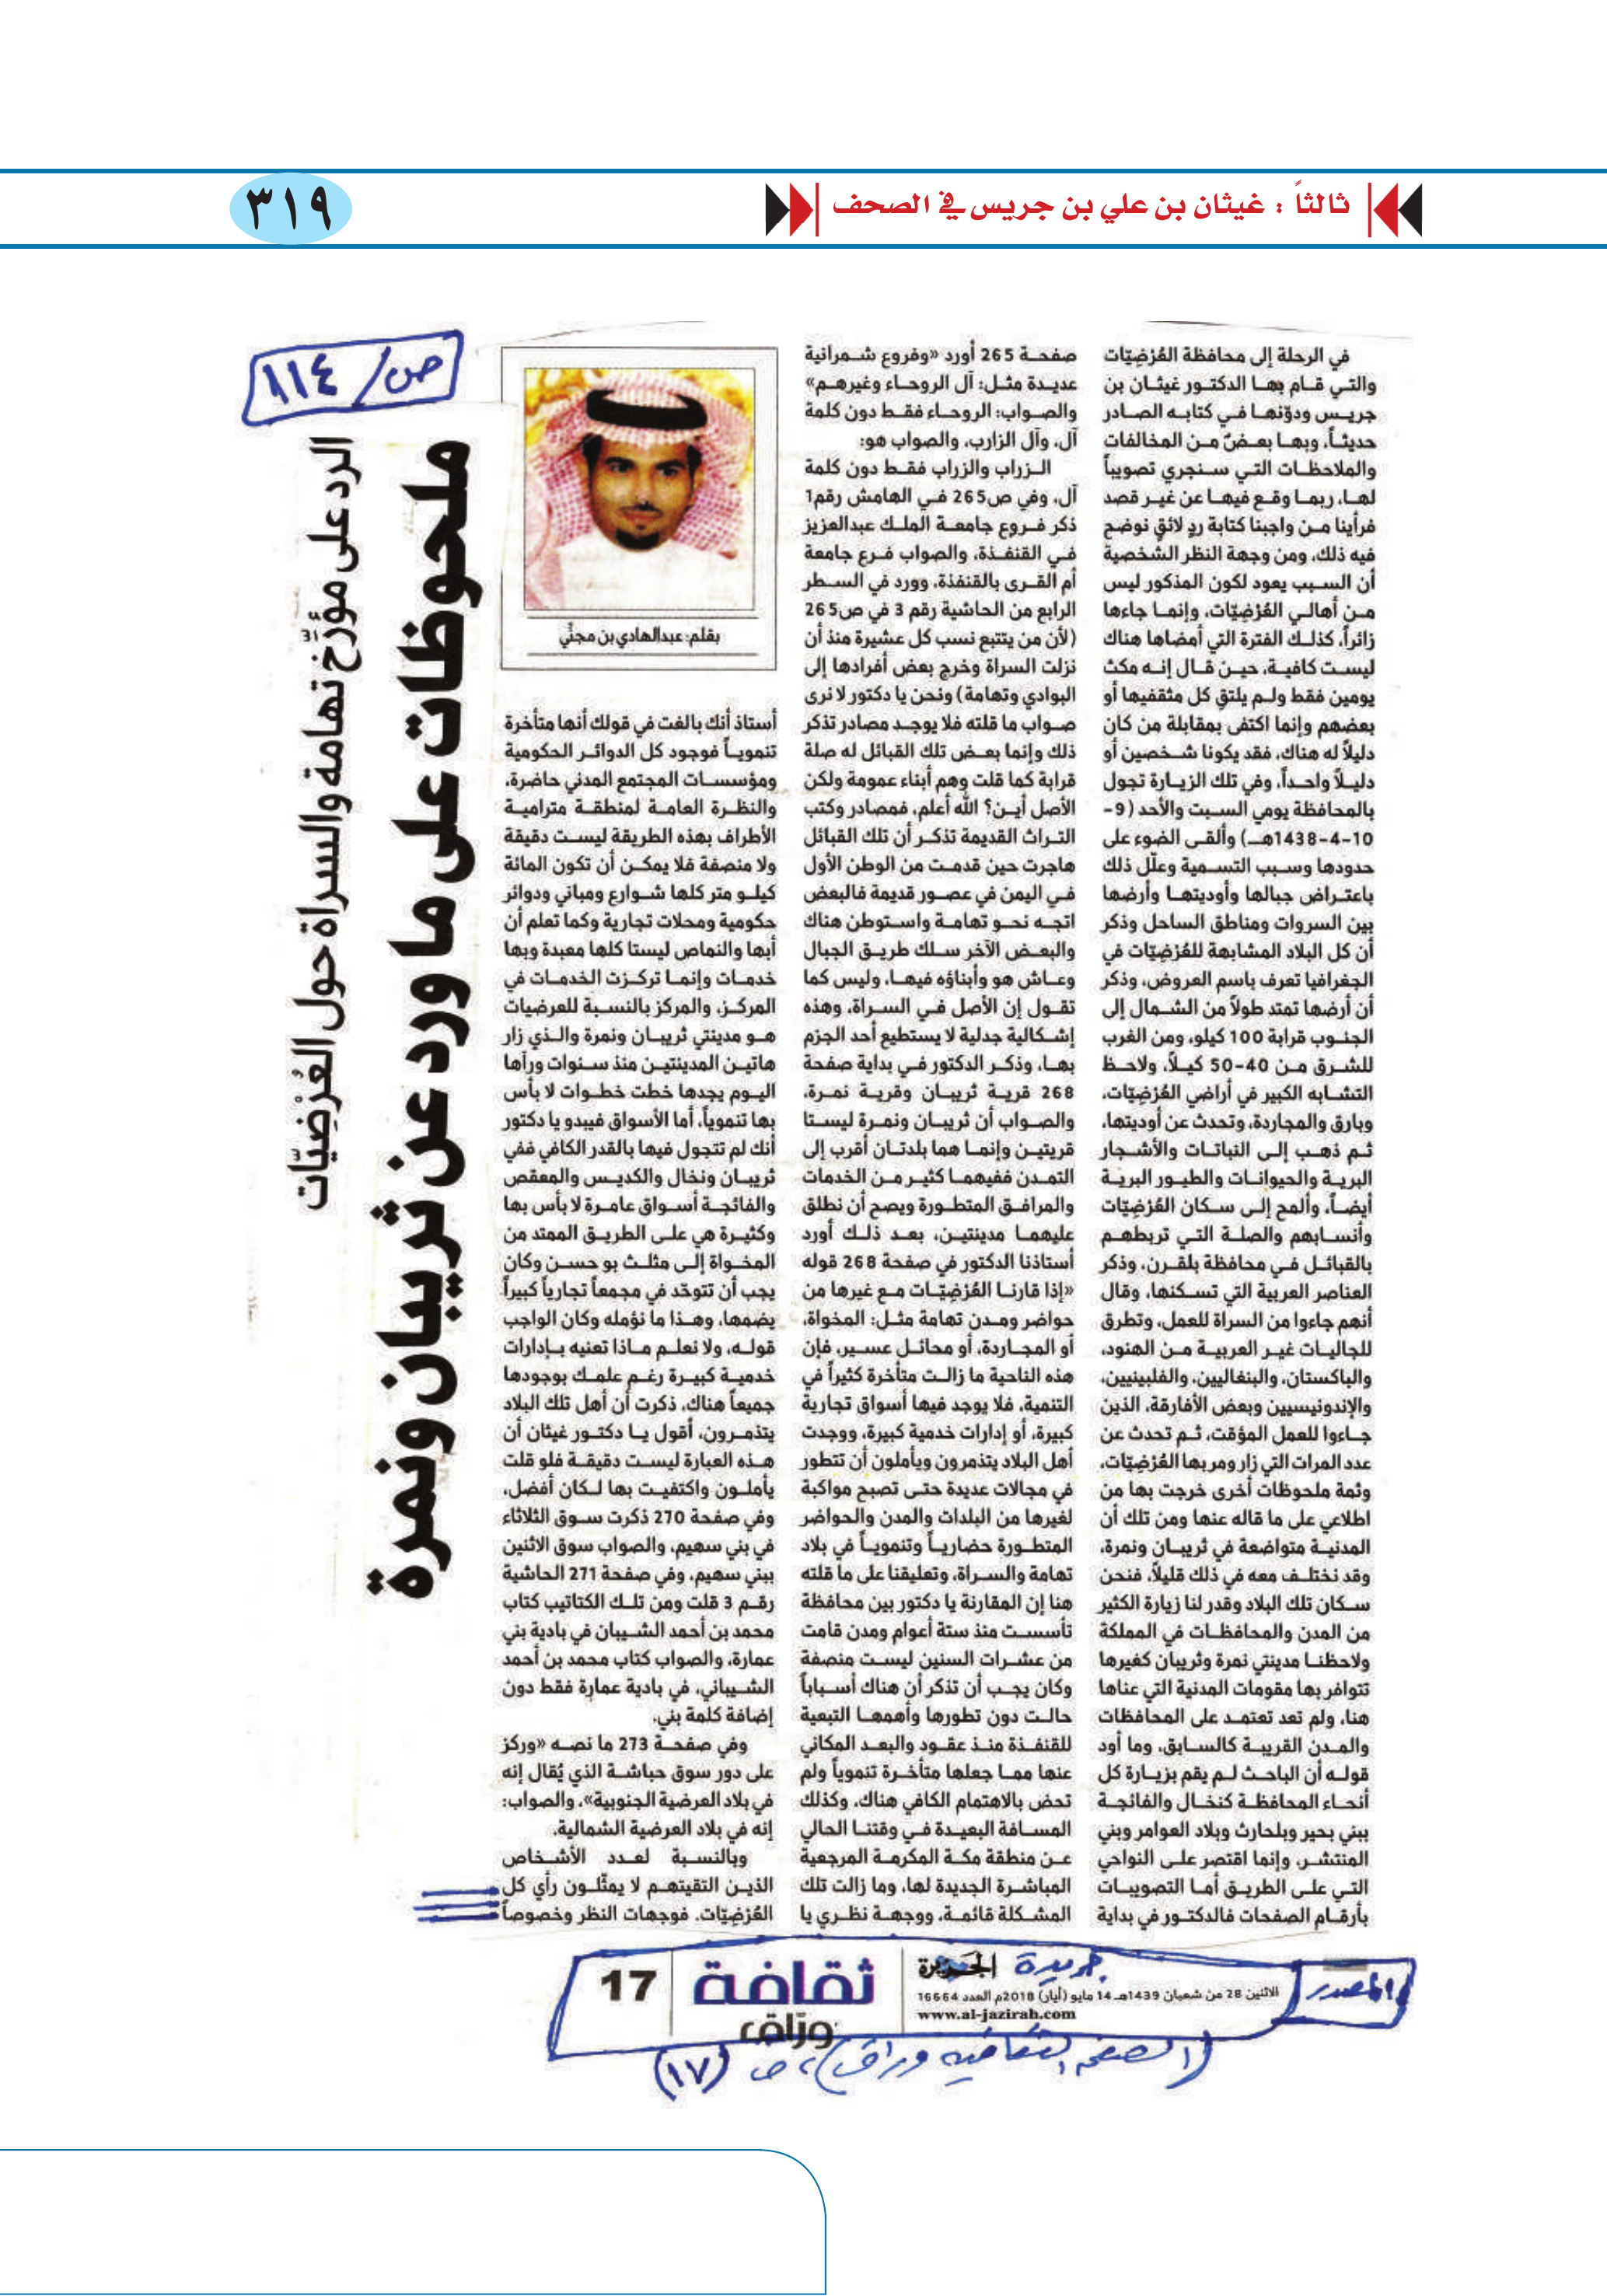 ثالثاً : غيثان بن علي بن جريس في الصحف
٣١٩
ص/ ١١٤
الرد على مؤرِّخ تهامة والسراة حول العُرْضِيّات
ملحوظات على ما ورد عن ثريبان ونمرة
في الرحلة إلى محافظة العُرْضِيّات
والتي قام بها الدكتور غيثان بن
جريس ودوّنها في كتابه الصادر
حديثاً، وبها بعضٌ من المخالفات
والملاحظات التي سنجري تصويباً
لها، ربما وقع فيها عن غير قصد
فرأينا من واجبنا كتابة ردٍ لائقٍ نوضح
فيه ذلك، ومن وجهة النظر الشخصية
أن السبب يعود لكون المذكور ليس
من أهالي العُرْضِيّات، وإنما جاءها
زائراً، كذلك الفترة التي أمضاها هناك
ليست كافية، حين قال إنه مكث
يومين فقط ولم يلتقِ كل مثقفيها أو
بعضهم وإنما اكتفى بمقابلة من كان
دليلاً له هناك، فقد يكونا شخصين أو
دليلاً واحداً، وفي تلك الزيارة تجول
بالمحافظة يومي السبت والأحد (9-
10-4-1438هـ) وألقى الضوء على
حدودها وسبب التسمية وعلّل ذلك
باعتراض جبالها وأوديتها وأرضها
بين السروات ومناطق الساحل وذكر
أن كل البلاد المشابهة للعُرْضِيّات في
الجغرافيا تعرف باسم العروض، وذكر
أن أرضها تمتد طولاً من الشمال إلى
الجنوب قرابة 100 كيلو، ومن الغرب
للشرق من 40-50 كيلاً، ولاحظ
التشابه الكبير في أراضي العُرْضِيّات،
وبارق والمجاردة، وتحدث عن أوديتها،
ثم ذهب إلى النباتات والأشجار
البرية والحيوانات والطيور البرية
أيضاً، وألمح إلى سكان العُرْضِيّات
وأنسابهم والصلة التي تربطهم
بالقبائل في محافظة بلقرن، وذكر
العناصر العربية التي تسكنها، وقال
أنهم جاءوا من السراة للعمل، وتطرق
للجاليات غير العربية من الهنود،
والباكستان، والبنغاليين، والفلبينيين،
والإندونيسيين وبعض الأفارقة، الذين
جاءوا للعمل المؤقت، ثم تحدث عن
عدد المرات التي زار ومر بها العُرْضِيّات،
وثمة ملحوظات أخرى خرجت بها من
اطلاعي على ما قاله عنها ومن تلك أن
المدنية متواضعة في ثريبان ونمرة،
وقد نختلف معه في ذلك قليلاً، فنحن
سكان تلك البلاد وقدر لنا زيارة الكثير
من المدن والمحافظات في المملكة
ولاحظنا مدينتي نمرة وثريبان كغيرها
تتوافر بها مقومات المدنية التي عناها
هنا، ولم تعد تعتمد على المحافظات
والمدن القريبة كالسابق، وما أود
قوله أن الباحث لم يقم بزيارة كل
أنحاء المحافظة كنخال والفائجة
ببني بحير وبلحارث وبلاد العوامر وبني
المنتشر، وإنما اقتصر على النواحي
التي على الطريق أما التصويبات
بأرقام الصفحات فالدكتور في بداية
صفحة 265 أورد «وفروع شمرانية
عديدة مثل: آل الروحاء وغيرهم»
والصواب: الروحاء فقط دون كلمة
آل، وآل الزارب، والصواب هو:
الزراب والزراب فقط دون كلمة
آل، وفي ص265 في الهامش رقم1
ذكر فروع جامعة الملك عبدالعزيز
في القنفذة، والصواب فرع جامعة
أم القرى بالقنفذة، وورد في السطر
الرابع من الحاشية رقم 3 في ص265
(لأن من يتتبع نسب كل عشيرة منذ أن
نزلت السراة وخرج بعض أفرادها إلى
البوادي وتهامة) ونحن يا دكتور لا نرى
صواب ما قلته فلا يوجد مصادر تذكر
ذلك وإنما بعض تلك القبائل له صلة
قرابة كما قلت وهم أبناء عمومة ولكن
الأصل أين؟ الله أعلم، فمصادر وكتب
التراث القديمة تذكر أن تلك القبائل
هاجرت حين قدمت من الوطن الأول
في اليمن في عصور قديمة فالبعض
اتجه نحو تهامة واستوطن هناك
والبعض الآخر سلك طريق الجبال
وعاش هو وأبناؤه فيها، وليس كما
تقول إن الأصل في السراة، وهذه
إشكالية جدلية لا يستطيع أحد الجزم
بها، وذكر الدكتور في بداية صفحة
268 قرية ثريبان وقرية نمرة،
والصواب أن ثريبان ونمرة ليستا
قريتين وإنما هما بلدتان أقرب إلى
التمدن ففيهما كثير من الخدمات
والمرافق المتطورة ويصح أن نطلق
عليهما مدينتين، بعد ذلك أورد
أستاذنا الدكتور في صفحة 268 قوله
«إذا قارنا العُرْضِيّات مع غيرها من
حواضر ومدن تهامة مثل: المخواة،
أو المجاردة، أو محائل عسير، فإن
هذه الناحية ما زالت متأخرة كثيراً في
التنمية، فلا يوجد فيها أسواق تجارية
كبيرة، أو إدارات خدمية كبيرة، ووجدت
أهل البلاد يتذمرون ويأملون أن تتطور
في مجالات عديدة حتى تصبح مواكبة
لغيرها من البلدات والمدن والحواضر
المتطورة حضارياً وتنموياً في بلاد
تهامة والسراة، وتعليقنا على ما قلته
هنا إن المقارنة يا دكتور بين محافظة
تأسست منذ ستة أعوام ومدن قامت
من عشرات السنين ليست منصفة
وكان يجب أن تذكر أن هناك أسباباً
حالت دون تطورها وأهمها التبعية
للقنفذة منذ عقود والبعد المكاني
عنها مما جعلها متأخرة تنموياً ولم
تحض بالاهتمام الكافي هناك، وكذلك
المسافة البعيدة في وقتنا الحالي
عن منطقة مكة المكرمة المرجعية
المباشرة الجديدة لها، وما زالت تلك
المشكلة قائمة، ووجهة نظري يا
بقلم: عبدالهادي بن مجنّي
أستاذ أنك بالغت في قولك أنها متأخرة
تنموياً فوجود كل الدوائر الحكومية
ومؤسسات المجتمع المدني حاضرة،
والنظرة العامة لمنطقة مترامية
الأطراف بهذه الطريقة ليست دقيقة
ولا منصفة فلا يمكن أن تكون المائة
كيلو متر كلها شوارع ومباني ودوائر
حكومية ومحلات تجارية وكما تعلم أن
أبها والنماص ليستا كلها معبدة وبها
خدمات وإنما تركزت الخدمات في
المركز، والمركز بالنسبة للعرضيات
هو مدينتي ثريبان ونمرة والذي زار
هاتين المدينتين منذ سنوات ورآها
اليوم يجدها خطت خطوات لا بأس
بها تنموياً، أما الأسواق فيبدو يا دكتور
أنك لم تتجول فيها بالقدر الكافي ففي
ثريبان ونخال والكديس والمعقص
والفائجة أسواق عامرة لا بأس بها
وكثيرة هي على الطريق الممتد من
المخواة إلى مثلث بو حسن وكان
يجب أن تتوحّد في مجمعاً تجارياً كبيراً
يضمها، وهذا ما نؤمله وكان الواجب
قوله، ولا نعلم ماذا تعنيه بإدارات
خدمية كبيرة رغم علمك بوجودها
جميعاً هناك، ذكرت أن أهل تلك البلاد
يتذمرون، أقول يا دكتور غيثان أن
هذه العبارة ليست دقيقة فلو قلت
يأملون واكتفيت بها لكان أفضل،
وفي صفحة 270 ذكرت سوق الثلاثاء
في بني سهيم، والصواب سوق الاثنين
ببني سهيم، وفي صفحة 271 الحاشية
رقم 3 قلت ومن تلك الكتاتيب كتاب
محمد بن أحمد الشيبان في بادية بني
عمارة، والصواب كتاب محمد بن أحمد
الشيباني، في بادية عمارة فقط دون
إضافة كلمة بني.
وفي صفحة 273 ما نصه «وركز
على دور سوق حباشة الذي يُقال إنه
في بلاد العرضية الجنوبية»، والصواب:
إنه في بلاد العرضية الشمالية.
وبالنسبة لعدد الأشخاص
الذين التقيتهم لا يمثّلون رأي كل
العُرْضِيّات. فوجهات النظر وخصوصاً
المصدر
جريدة الجزيرة
الاثنين 28 من شعبان 1439هـ 14 مايو (أيار) 2018م العدد 16664
www.al-jazirah.com
ثقافة
ورّاق
17
(الصفحة الثقافية وراق)، ص (١٧)